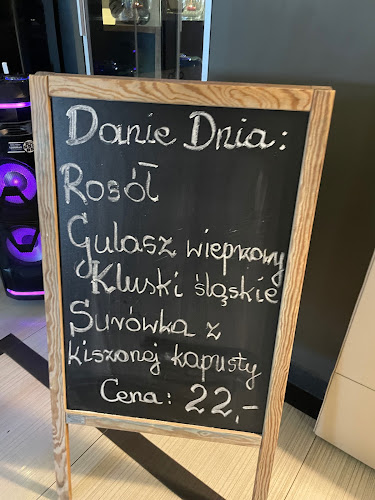 Danie Dnia:
Rosół
Gulasz wieprzowy
Kluski śląskie
Surówka z
kiszonej kapusty
Cena: 22,-